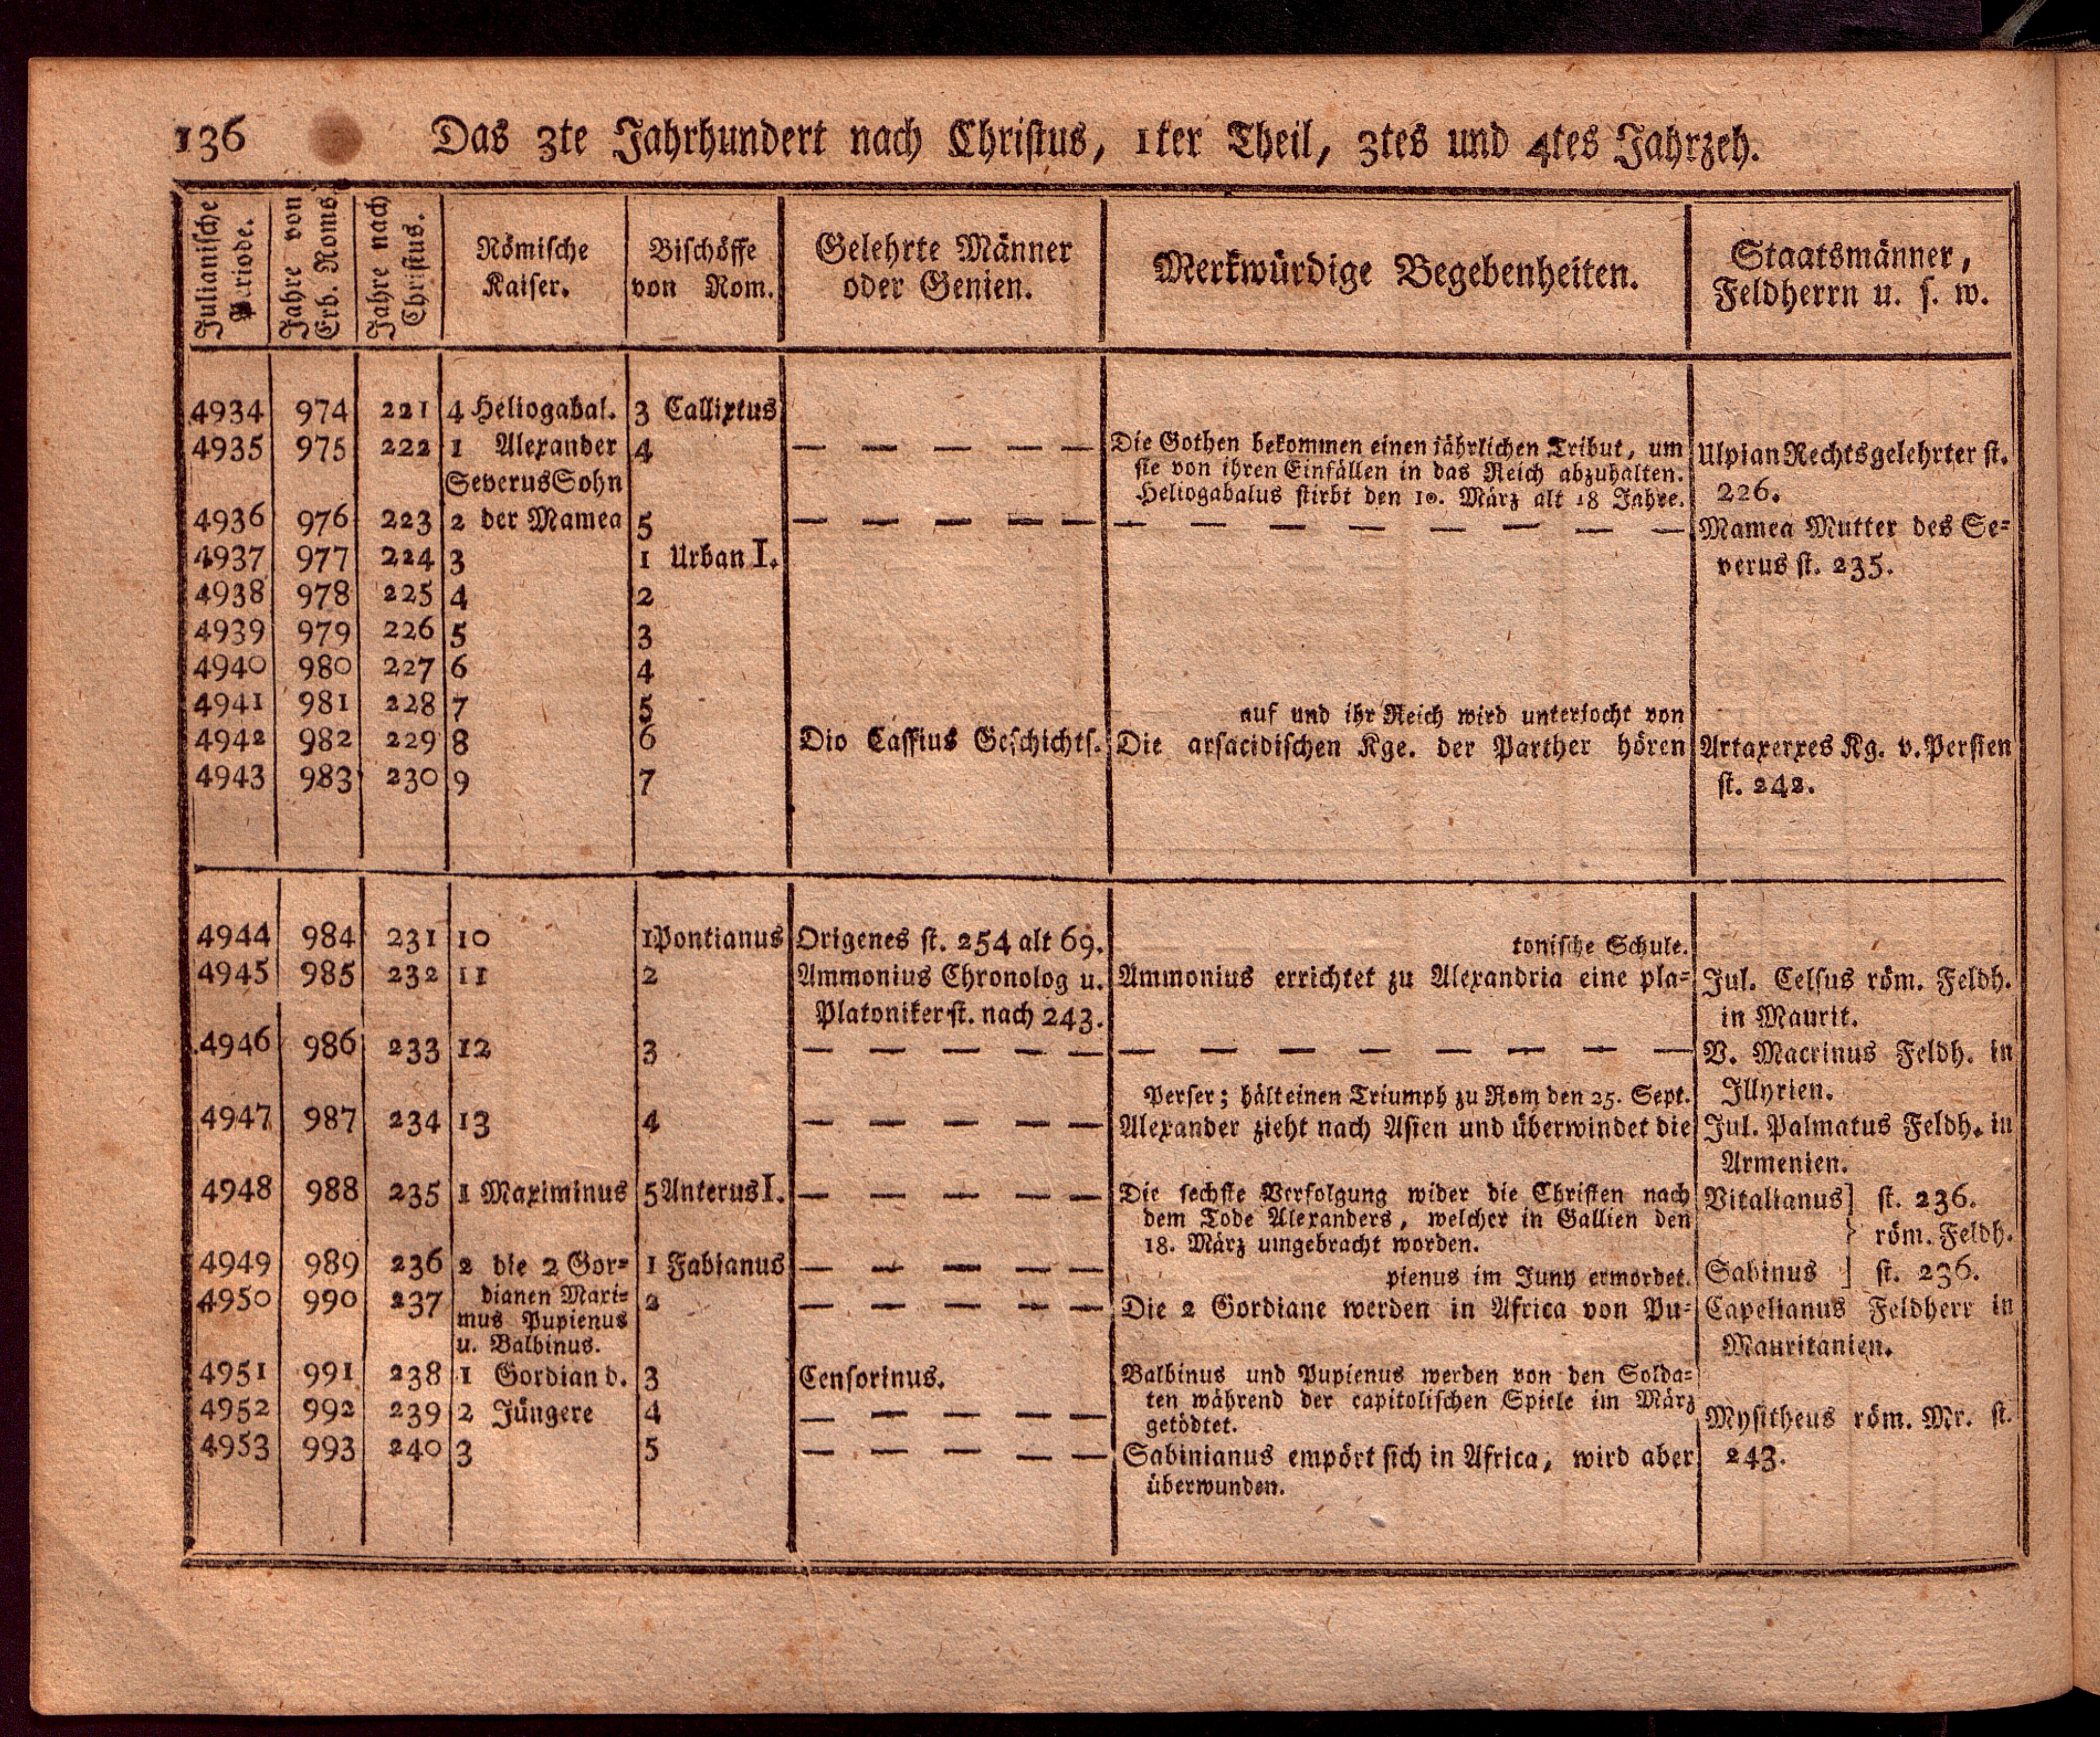 136 Das 3te Jahrhundert nach Christus, 1ter Theil, 3tes und 4tes Jahrzeh.
Julianische Periode. Jahre von Erb. Roms. Jahre nach Christus. Römische Kaiser. Bischöffe von Rom. Gelehrte Männer oder Genien. Merkwürdige Begebenheiten. Staatsmänner, Feldherrn u. s. w.
4934 974 221 4 Heliogabal. 3 Callixtus
4935 975 222 1 Alexander 4 — — — — — Die Gothen bekommen einen jährlichen Tribut, um Ulpian Rechtsgelehrter st.
Severus Sohn sie von ihren Einfällen in das Reich abzuhalten. 226.
Heliogabalus stirbt den 10. März alt 18 Jahre.
4936 976 223 2 der Mamea 5 — — — — — — — — — — — — — Mamea Mutter des Se-
4937 977 224 3 1 Urban I. verus st. 235.
4938 978 225 4 2
4939 979 226 5 3
4940 980 227 6 4
4941 981 228 7 5 auf und ihr Reich wird unterjocht von
4942 982 229 8 6 Dio Cassius Geschichts. Die arsacidischen Kge. der Parther hören Artaxerxes Kg. v. Persien
4943 983 230 9 7 st. 242.
4944 984 231 10 1 Pontianus Origenes st. 254 alt 69. tonische Schule.
4945 985 232 11 2 Ammonius Chronolog u. Ammonius errichtet zu Alexandria eine pla- Jul. Celsus röm. Feldh.
Platoniker st. nach 243. in Maurit.
4946 986 233 12 3 — — — — — — — — — — — — — V. Macrinus Feldh. in
Perser; hält einen Triumph zu Rom den 25. Sept. Illyrien.
4947 987 234 13 4 — — — — — Alexander zieht nach Asien und überwindet die Jul. Palmatus Feldh. in
Armenien.
4948 988 235 1 Maximinus 5 Anterus I. — — — — — Die sechste Verfolgung wider die Christen nach Vitalianus] st. 236.
dem Tode Alexanders, welcher in Gallien den } röm. Feldh.
18. März umgebracht worden.
4949 989 236 2 die 2 Gor- 1 Fabianus — — — — — pienus im Juny ermordet. Sabinus ] st. 236.
4950 990 237 dianen Mari- 2 — — — — — Die 2 Gordiane werden in Africa von Pu- Capelianus Feldherr in
mus Pupienus
u. Balbinus. Mauritanien.
4951 991 238 1 Gordian d. 3 Censorinus. Balbinus und Pupienus werden von den Solda-
ten während der capitolischen Spiele im März
4952 992 239 2 Jüngere 4 — — — — — getödtet. Mysitheus röm. Mr. st.
4953 993 240 3 5 — — — — — Sabinianus empört sich in Africa, wird aber 243.
überwunden.